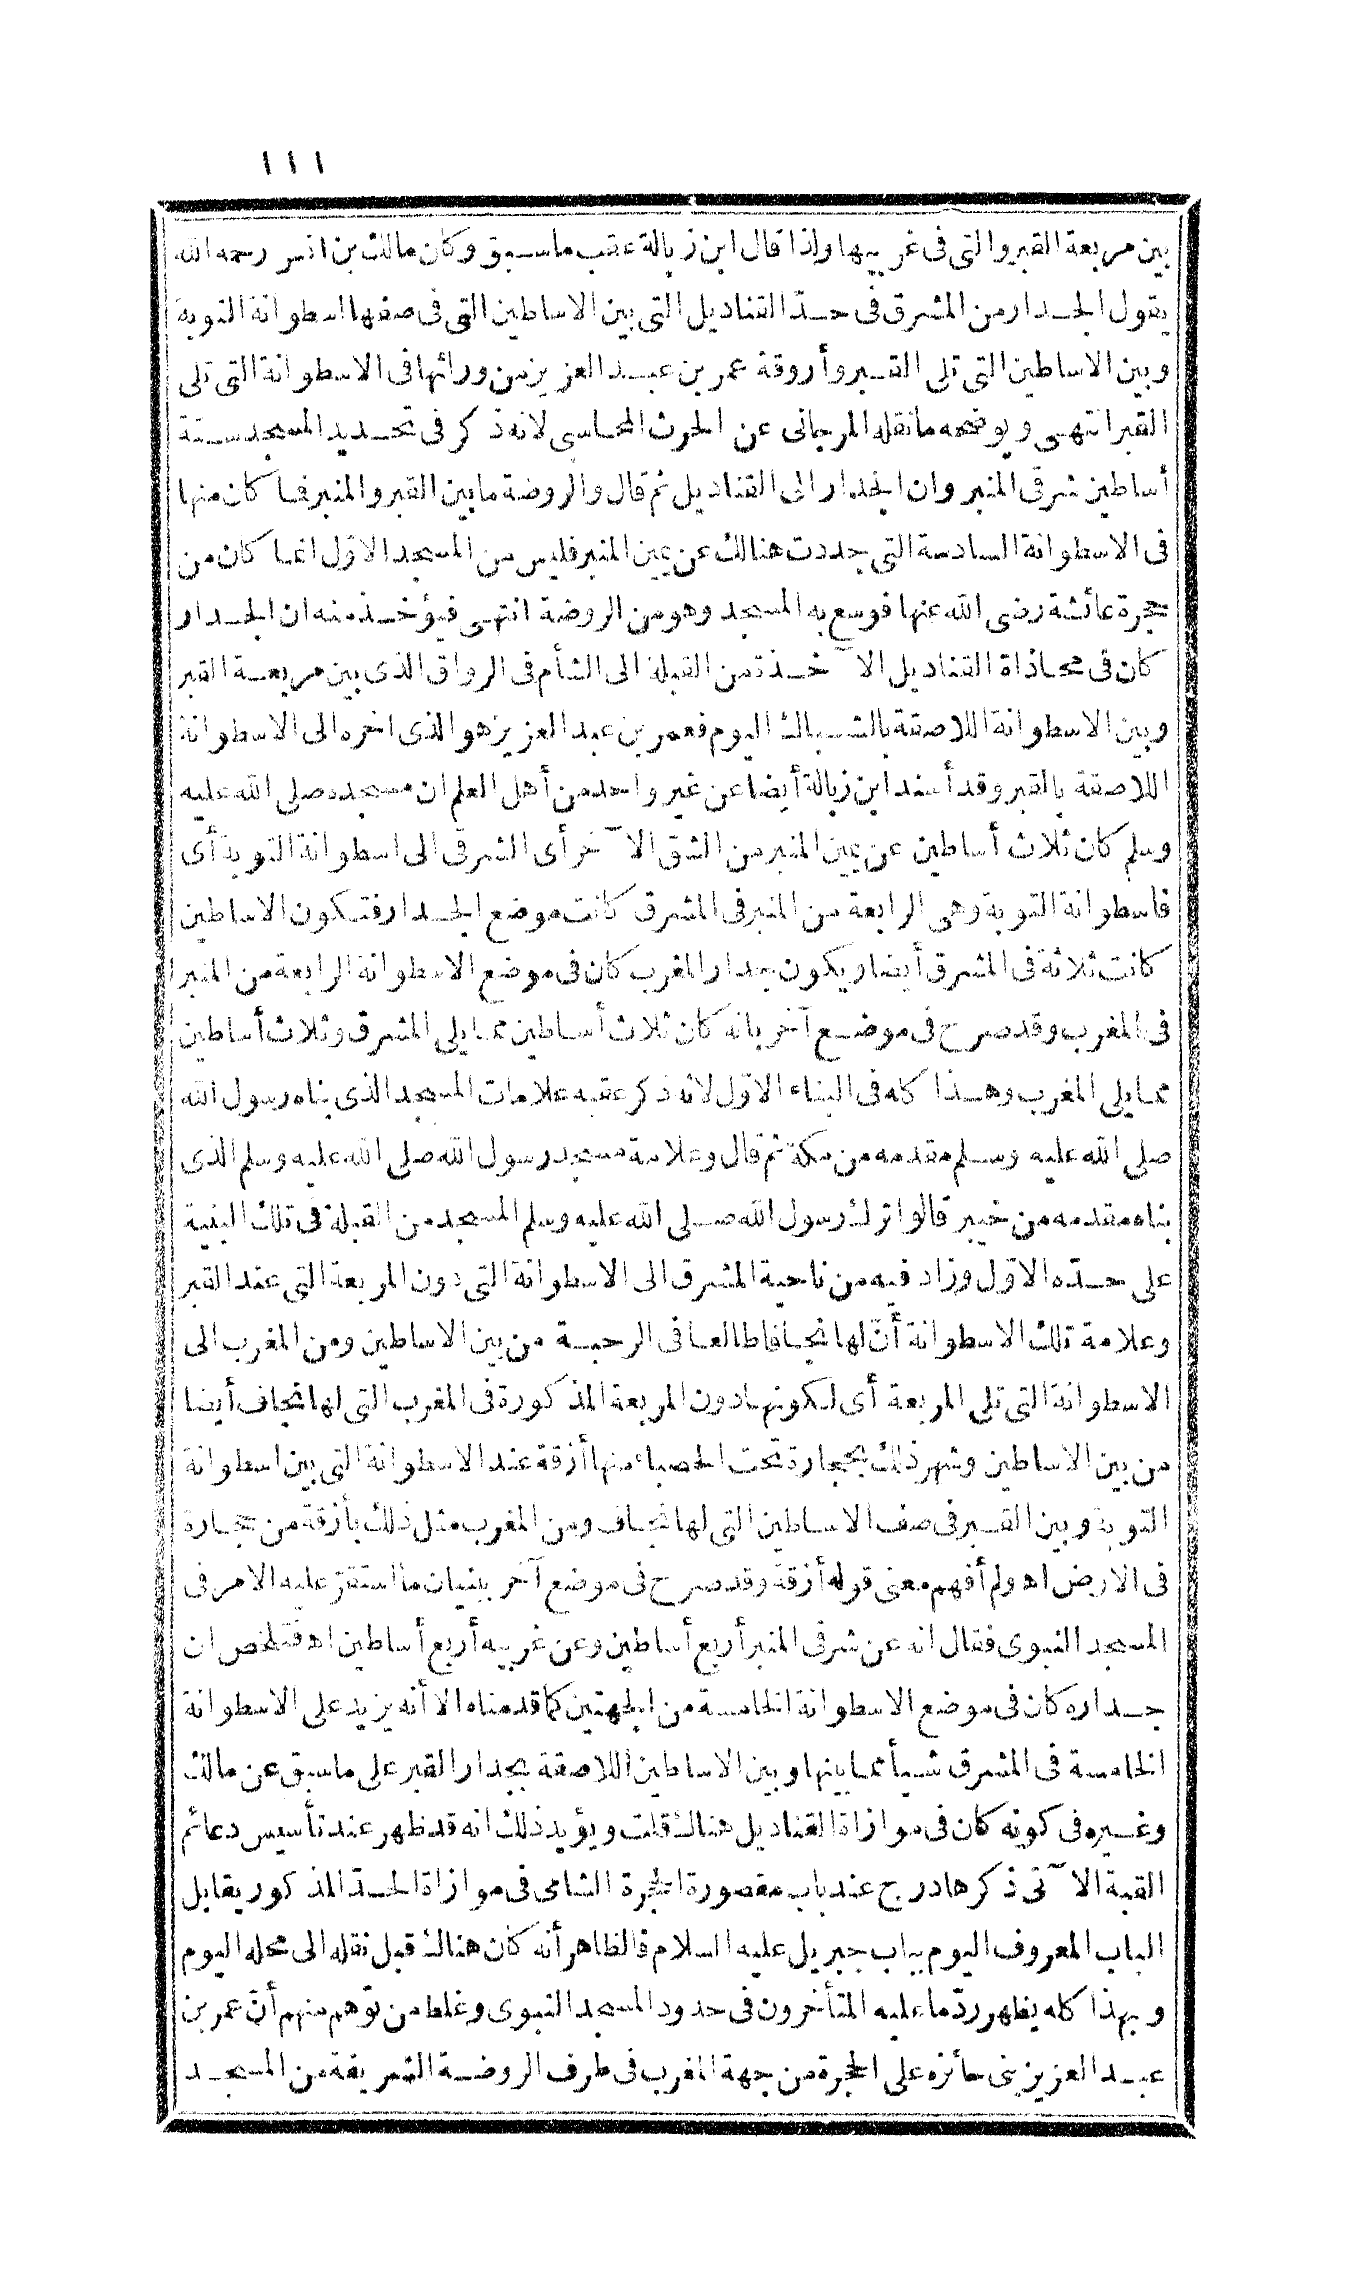 ١١١
بين مربعة القبر والتى فى غربيها ولذا قال ابن زبالة عقب ماسبق وكان مالك بن انس رحمه الله
يقول الجدار من المشرق فى حدّ القناديل التى بين الاساطين التى فى صفها اسطوانة التوبة
وبين الاساطين التى تلى القبر وأروقة عمر بن عبد العزيز من ورائها فى الاسطوانة التى تلى
القبر انتهى ويوضحه مانقله المرجانى عن الحرث المحاسبى لانه ذكر فى تحديد المسجد ستة
أساطين شرقى المنبر وان الجدار الى القناديل ثم قال والروضة مابين القبر والمنبر فما كان منها
فى الاسطوانة السادسة التى حددت هنالك عن يمين المنبر فليس من المسجد الاوّل انما كان من
حجرة عائشة رضى الله عنها فوسع به المسجد وهو من الروضة انتهى فيؤخذ منه ان الجدار
كان فى محاذاة القناديل الآخذة من القبلة الى الشأم فى الرواق الذى بين مربعة القبر
وبين الاسطوانة اللاصقة بالشباك اليوم فعمر بن عبد العزيز هو الذى اخره الى الاسطوانة
اللاصقة بالقبر وقد أسند ابن زبالة أيضا عن غير واحد من أهل العلم ان مسجده صلى الله عليه
وسلم كان ثلاث أساطين عن يمين المنبر من الشق الآخر أى الشرقى الى اسطوانة التوبة أى
فاسطوانة التوبة وهى الرابعة من المنبر فى المشرق كانت موضع الجدار فتكون الاساطين
كانت ثلاثة فى المشرق أيضا ويكون جدار المغرب كان فى موضع الاسطوانة الرابعة من المنبر
فى المغرب وقد صرح فى موضع آخر بانه كان ثلاث أساطين مما يلى المشرق وثلاث أساطين
مما يلى المغرب وهذا كله فى البناء الاوّل لانه ذكر عقبه علامات المسجد الذى بناه رسول الله
صلى الله عليه وسلم مقدمه من مكة ثم قال وعلامة مسجد رسول الله صلى الله عليه وسلم الذى
بناه مقدمه من خيبر قالوا ترك رسول الله صلى الله عليه وسلم المسجد من القبلة فى تلك البنية
على حدّه الاوّل وزاد فيه من ناحية المشرق الى الاسطوانة التى دون المربعة التى عند القبر
وعلامة تلك الاسطوانة أنّ لها نجافا طالعا فى الرحبة من بين الاساطين ومن المغرب الى
الاسطوانة التى تلى المربعة أى لكونها دون المربعة المذكورة فى المغرب التى لها نجاف أيضا
من بين الاساطين وشهر ذلك بحجارة تحت الحصباء منها أزقة عند الاسطوانة التى بين اسطوانة
التوبة وبين القبر فى صف الاساطين التى لها نجاف ومن المغرب مثل ذلك بأزقة من حجارة
فى الارض اه ولم أفهم معنى قوله أزقة وقد صرح فى موضع آخر ببنيان ما استقرّ عليه الامر فى
المسجد النبوى فقال انه عن شرقى المنبر أربع أساطين وعن غربيه أربع أساطين اه فتلخص ان
جداره كان فى موضع الاسطوانة الخامسة من الجهتين كما قدمناه الا أنه يزيد على الاسطوانة
الخامسة فى المشرق شيأ مما بينها وبين الاساطين اللاصقة بجدار القبر على ماسبق عن مالك
وغيره فى كونه كان فى موازاة القناديل هنالك قلت ويؤيد ذلك انه قد ظهر عند تأسيس دعائم
القبة الآتى ذكرها درج عند باب مقصورة الحجرة الشامى فى موازاة الحدّ المذكور يقابل
الباب المعروف اليوم بباب جبريل عليه السلام فالظاهر أنه كان هنالك قبل نقله الى محله اليوم
وبهذا كله يظهر ردّ ما عليه المتأخرون فى حدود المسجد النبوى وغلط من توّهم منهم أنّ عمر بن
عبد العزيز بنى حائزه على الحجرة من جهة المغرب فى طرف الروضة الشريفة من المسجد